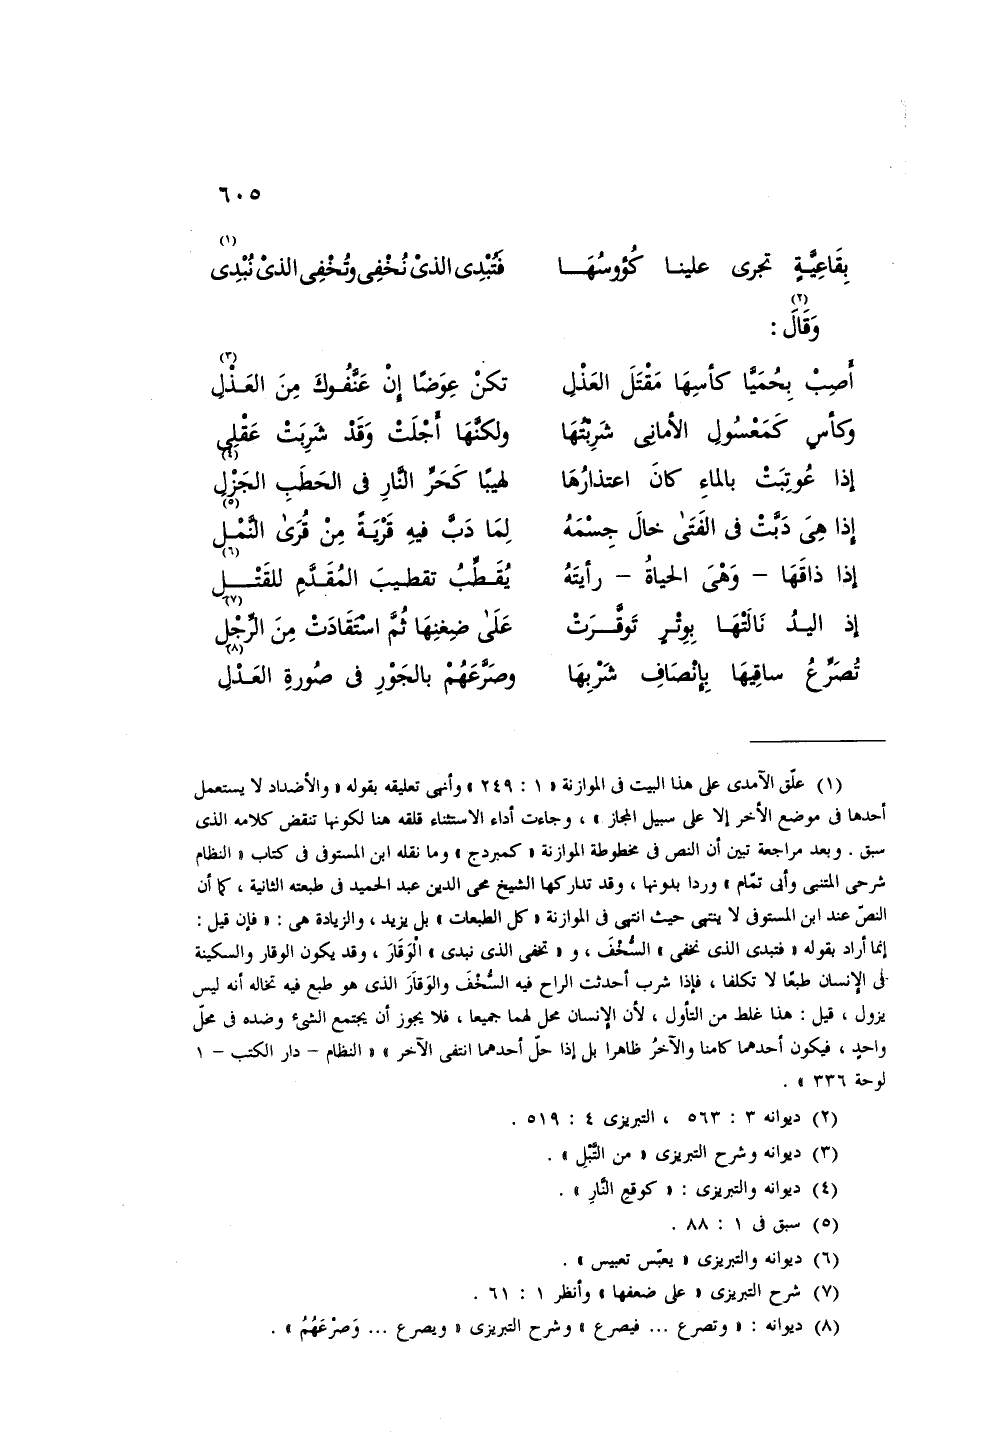 ٦٠٥
بِقَاعِيَّةٍ تجرى علينـا كُؤوسُهَـــا فَتُبْدِى الذىْ نُخْفِى وتُخْفِى الذىْ نُبْدِى (١)
وَقَالَ (٢) :
أَصِبْ بِحُمَيَّا كأسِهَا مَقْتَلَ العَذْلِ تكنْ عِوَضًا إِنْ عَنَّفُـوكَ مِنَ العَـذْلِ (٣)
وكأسٍ كَمَعْسُولِ الأمانِى شَرِبْتُهَا ولكنَّهَا أَجْلَتْ وَقَدْ شَرِبَتْ عَقْلِى
إذا عُوتِبَتْ بالماءِ كانَ اعتذارُهَا لهيبًا كَحَرِّ النَّارِ فى الحَطَبِ الجَزْلِ (٤)
إذا هِىَ دَبَّتْ فى الفَتَىٰ خالَ جِسْمَهُ لِمَا دَبَّ فيهِ قَرْيَةً مِنْ قُرَىٰ النَّمْـلِ (٥)
إذا ذاقَهَا – وَهْىَ الحياةُ – رأيتَهُ يُقَـطِّبُ تقطيبَ المُقَـدَّمِ للقَتْــــلِ (٦)
إذ اليـدُ نَالَتْهَـا بِوِتْرٍ تَوقَّـــرَتْ عَلَىٰ ضِغنِهَا ثُمَّ اسْتَقَادَتْ مِنَ الرِّجْلِ (٧)
تُصَرِّعُ ساقِيهَا بِإنْصَافِ شَرْبِهَا وصَرَّعَهُمْ بالجَوْرِ فى صُورةِ العَـدْلِ (٨)
(١) علّق الآمدى على هذا البيت فى الموازنة « ١ : ٢٤٩ » وأنهى تعليقه بقوله « والأضداد لا يستعمل
أحدها فى موضع الأخر إلا على سبيل المجاز » ، وجاءت أداء الاستثناء قلقه هنا لكونها تنقض كلامه الذى
سبق . وبعد مراجعة تبين أن النص فى مخطوطة الموازنة « كمبردج » وما نقله ابن المستوفى فى كتاب « النظام
شرحى المتنبى وأبى تمّام » وردا بدونها ، وقد تداركها الشيخ محى الدين عبد الحميد فى طبعته الثانية ، كما أن
النصّ عند ابن المستوفى لا ينتهى حيث انتهى فى الموازنة « كل الطبعات » بل يزيد ، والزيادة هى : « فإن قيل :
إنما أراد بقوله « فتبدى الذى نخفى » السُّخْفَ ، و « تخفى الذى نبدى » الْوَقَارَ ، وقد يكون الوقار والسكينة
فى الإنسان طبعًا لا تكلفا ، فإذا شرب أحدثت الراح فيه السُّخْفَ والوَقَارَ الذى هو طبع فيه تخاله أنه ليس
يزول ، قيل : هذا غلط من التأول ، لأن الإنسان محل لهما جميعا ، فلا يجوز أن يجتمع الشىء وضده فى محلّ
واحدٍ ، فيكون أحدهما كامنا والآخرُ ظاهرا بل إذا حلّ أحدهما انتفى الآخر » « النظام – دار الكتب – ١
لوحة ٣٣٦ » .
(٢) ديوانه ٣ : ٥٦٣ ، التبريزى ٤ : ٥١٩ .
(٣) ديوانه وشرح التبريزى « من التَّبْلِ » .
(٤) ديوانه والتبريزى : « كوقعِ النَّارِ » .
(٥) سبق فى ١ : ٨٨ .
(٦) ديوانه والتبريزى « يعبّس تعبيس » .
(٧) شرح التبريزى « على ضعفها » وأنظر ١ : ٦١ .
(٨) ديوانه : « وتصرع ... فيصرع » وشرح التبريزى « ويصرع ... وَصرْعَهُمُ » .